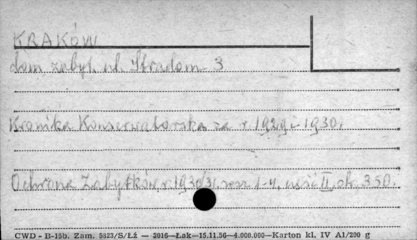 KRAKÓW
dom zabyt. ul. Stradom 3
Kronika Konserwatorska za r 1929 i 1930.
Ochrona Zabytków, r. 1930/31, zesz. 1-4, część II, str. 350.
CWD - B-15b. Zam. 5623/S/Łż — 2916—Łak—15.11.56—4.000.000—Karton kl. IV A1/200 g